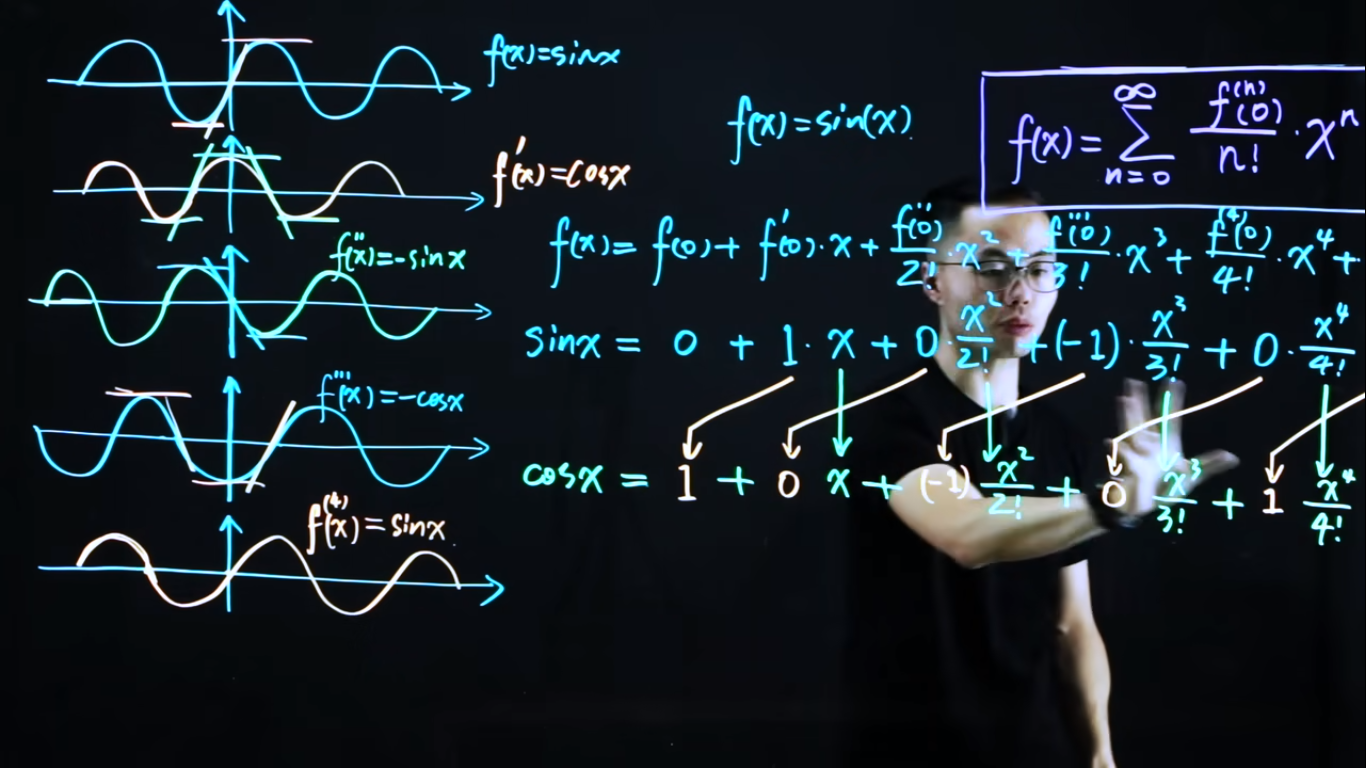 f(x)=sinx
f'(x)=cosx
f''(x)=-sinx
f'''(x)=-cosx
f⁽⁴⁾(x)=sinx
f(x)=sin(x)
f(x)= ∞ ∑ n=0 f⁽ⁿ⁾(0)/n! · xⁿ
f(x)= f(0)+ f'(0)·x+ f''(0)/2! ·x² + f'''(0)/3! ·x³+ f⁽⁴⁾(0)/4! ·x⁴+
sinx = 0 + 1·x + 0·x²/2! +(-1)·x³/3! + 0·x⁴/4!
cosx = 1 + 0 x + (-1) x²/2! + 0 x³/3! + 1 x⁴/4!